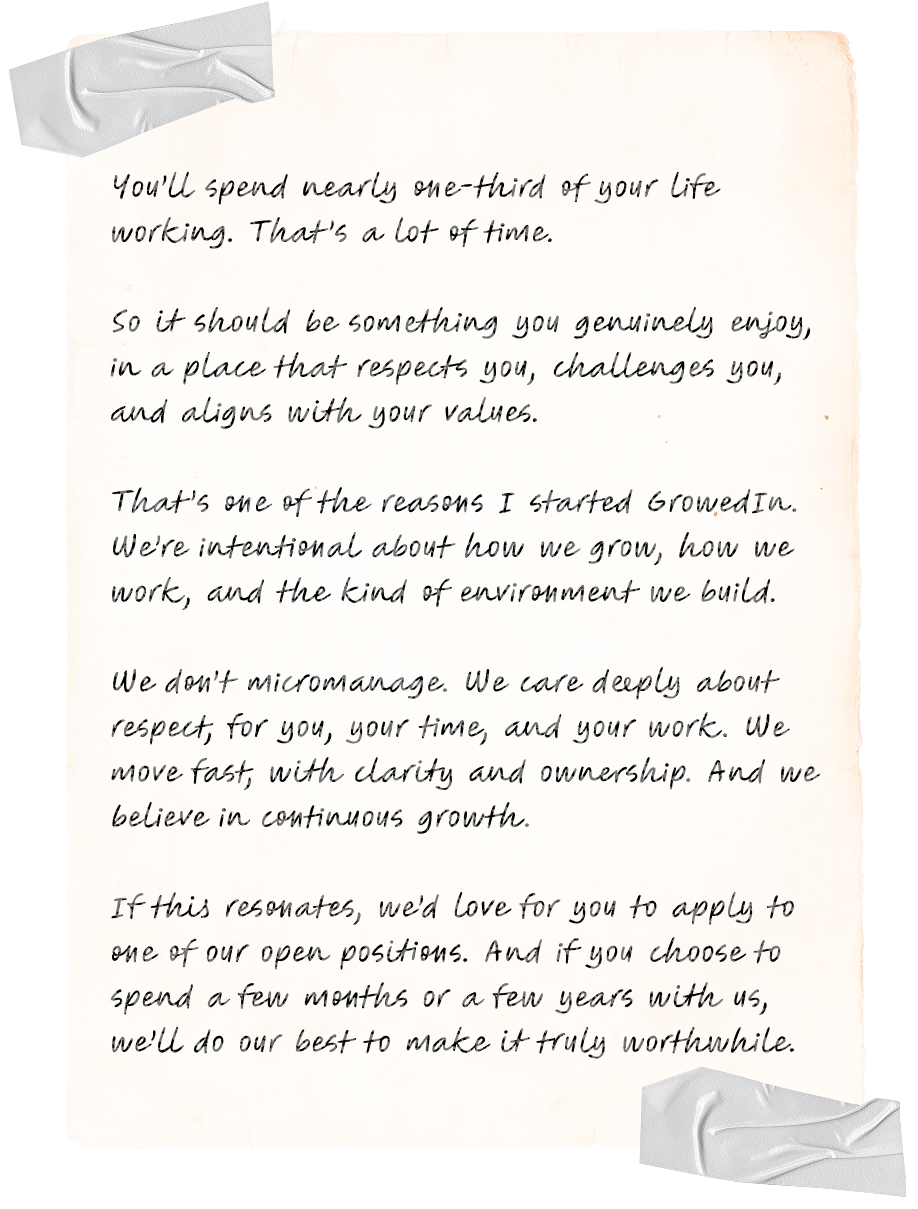 You'll spend nearly one-third of your life
working. That's a lot of time.
So it should be something you genuinely enjoy,
in a place that respects you, challenges you,
and aligns with your values.
That's one of the reasons I started GrowedIn.
We're intentional about how we grow, how we
work, and the kind of environment we build.
We don't micromanage. We care deeply about
respect, for you, your time, and your work. We
move fast, with clarity and ownership. And we
believe in continuous growth.
If this resonates, we'd love for you to apply to
one of our open positions. And if you choose to
spend a few months or a few years with us,
we'll do our best to make it truly worthwhile.